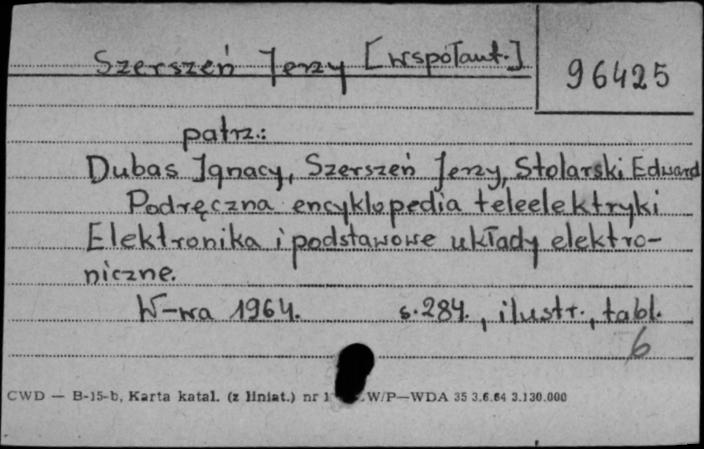 Szerszeń Jerzy [współaut.]
96425
patrz.:
Dubas Ignacy, Szerszeń Jerzy, Stolarski Edward
Podręczna encyklopedia teleelektryki
Elektronika i podstawowe układy elektro-
niczne.
W-wa 1964. s.284., ilustr., tabl.
6
CWD — B-15-b, Karta katal. (z liniat.) nr 1 W/P—WDA 35 3.6.64 3.130.000